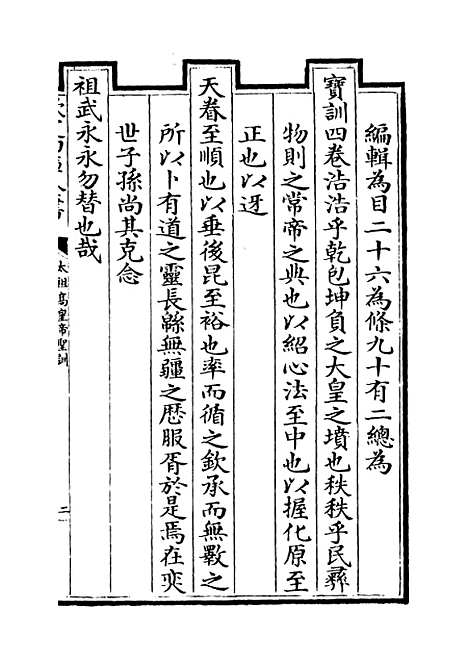 編輯為目二十六為條九十有二總為
寶訓四卷浩浩乎乾包坤負之大皇之墳也秩秩乎民彞
物則之常帝之典也以紹心法至中也以握化原至
正也以迓
天眷至順也以垂後昆至裕也率而循之欽承而無斁之
所以卜有道之靈長緜無疆之歴服胥於是焉在奕
世子孫尚其克念
祖武永永勿替也哉
太祖高皇帝聖訓
二